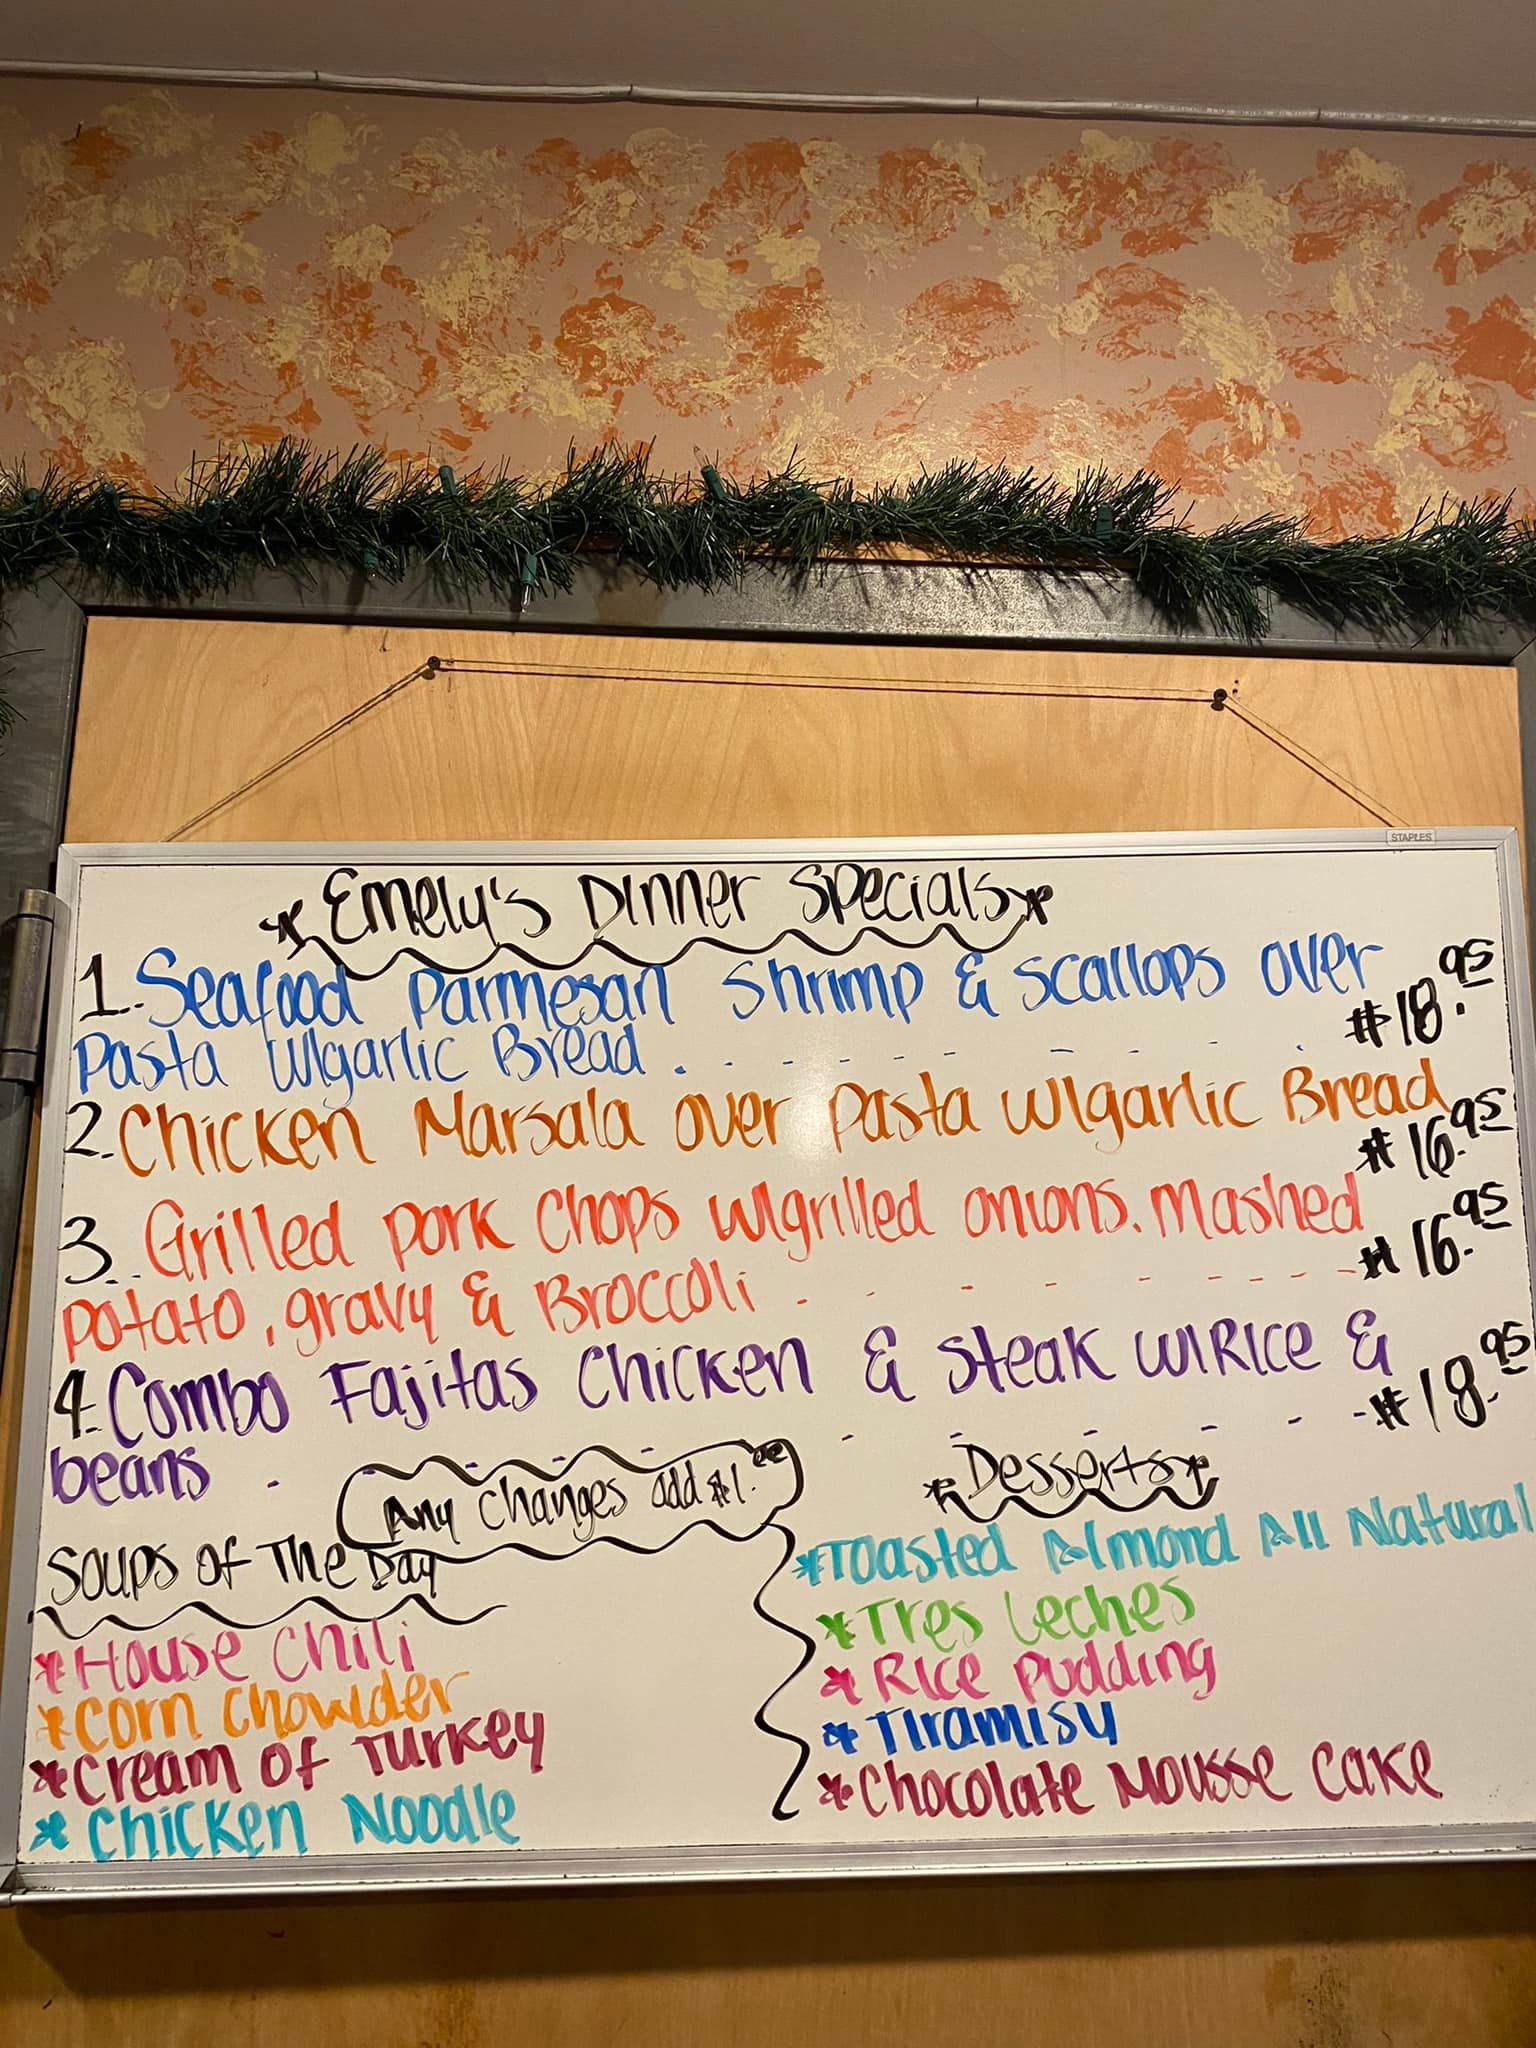 STAPLES
*Emely's Dinner Specials*
1. Seafood Parmesan Shrimp & Scallops over
Pasta w/garlic Bread . - - - - - - - . $18.95
2. Chicken Marsala over Pasta w/garlic Bread
$16.95
3... Grilled Pork Chops w/grilled onions. Mashed
Potato, gravy & Broccoli - - - - - - - - - $16.95
4. Combo Fajitas Chicken & Steak w/Rice &
beans - - - - - - - - - - $18.95
Any Changes add $1.00
Soups of The Day
*House Chili
*Corn Chowlder
*Cream of Turkey
*Chicken Noodle
*Desserts*
*Toasted Almond All Natural
*Tres Leches
*Rice Pudding
*Tiramisu
*Chocolate Mousse Cake